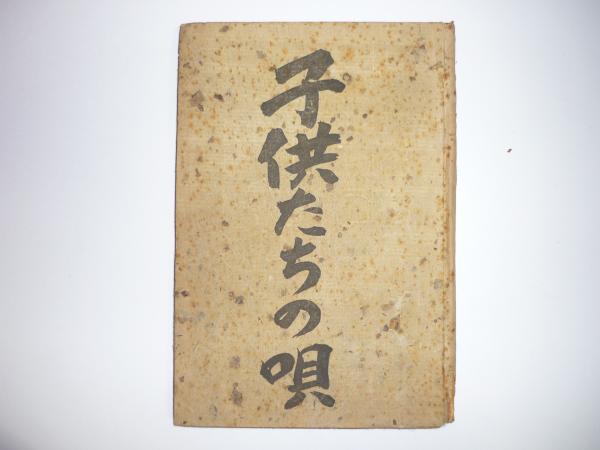 子供たちの唄